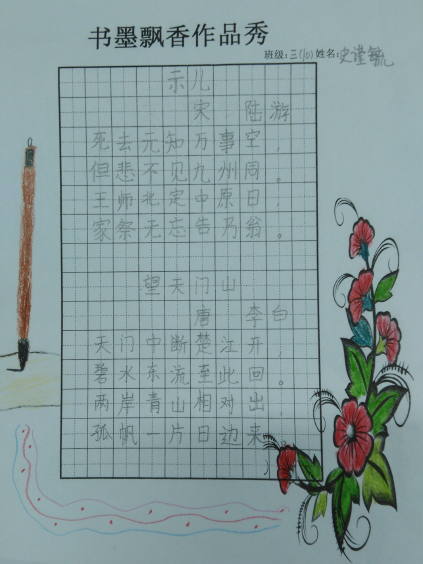 书墨飘香作品秀
班级:三(10)姓名:史谨毓
示儿
宋 陆游
死去元知万事空,
但悲不见九州同。
王师北定中原日,
家祭无忘告乃翁。
望天门山
唐 李白
天门中断楚江开,
碧水东流至此回。
两岸青山相对出
孤帆一片日边来。